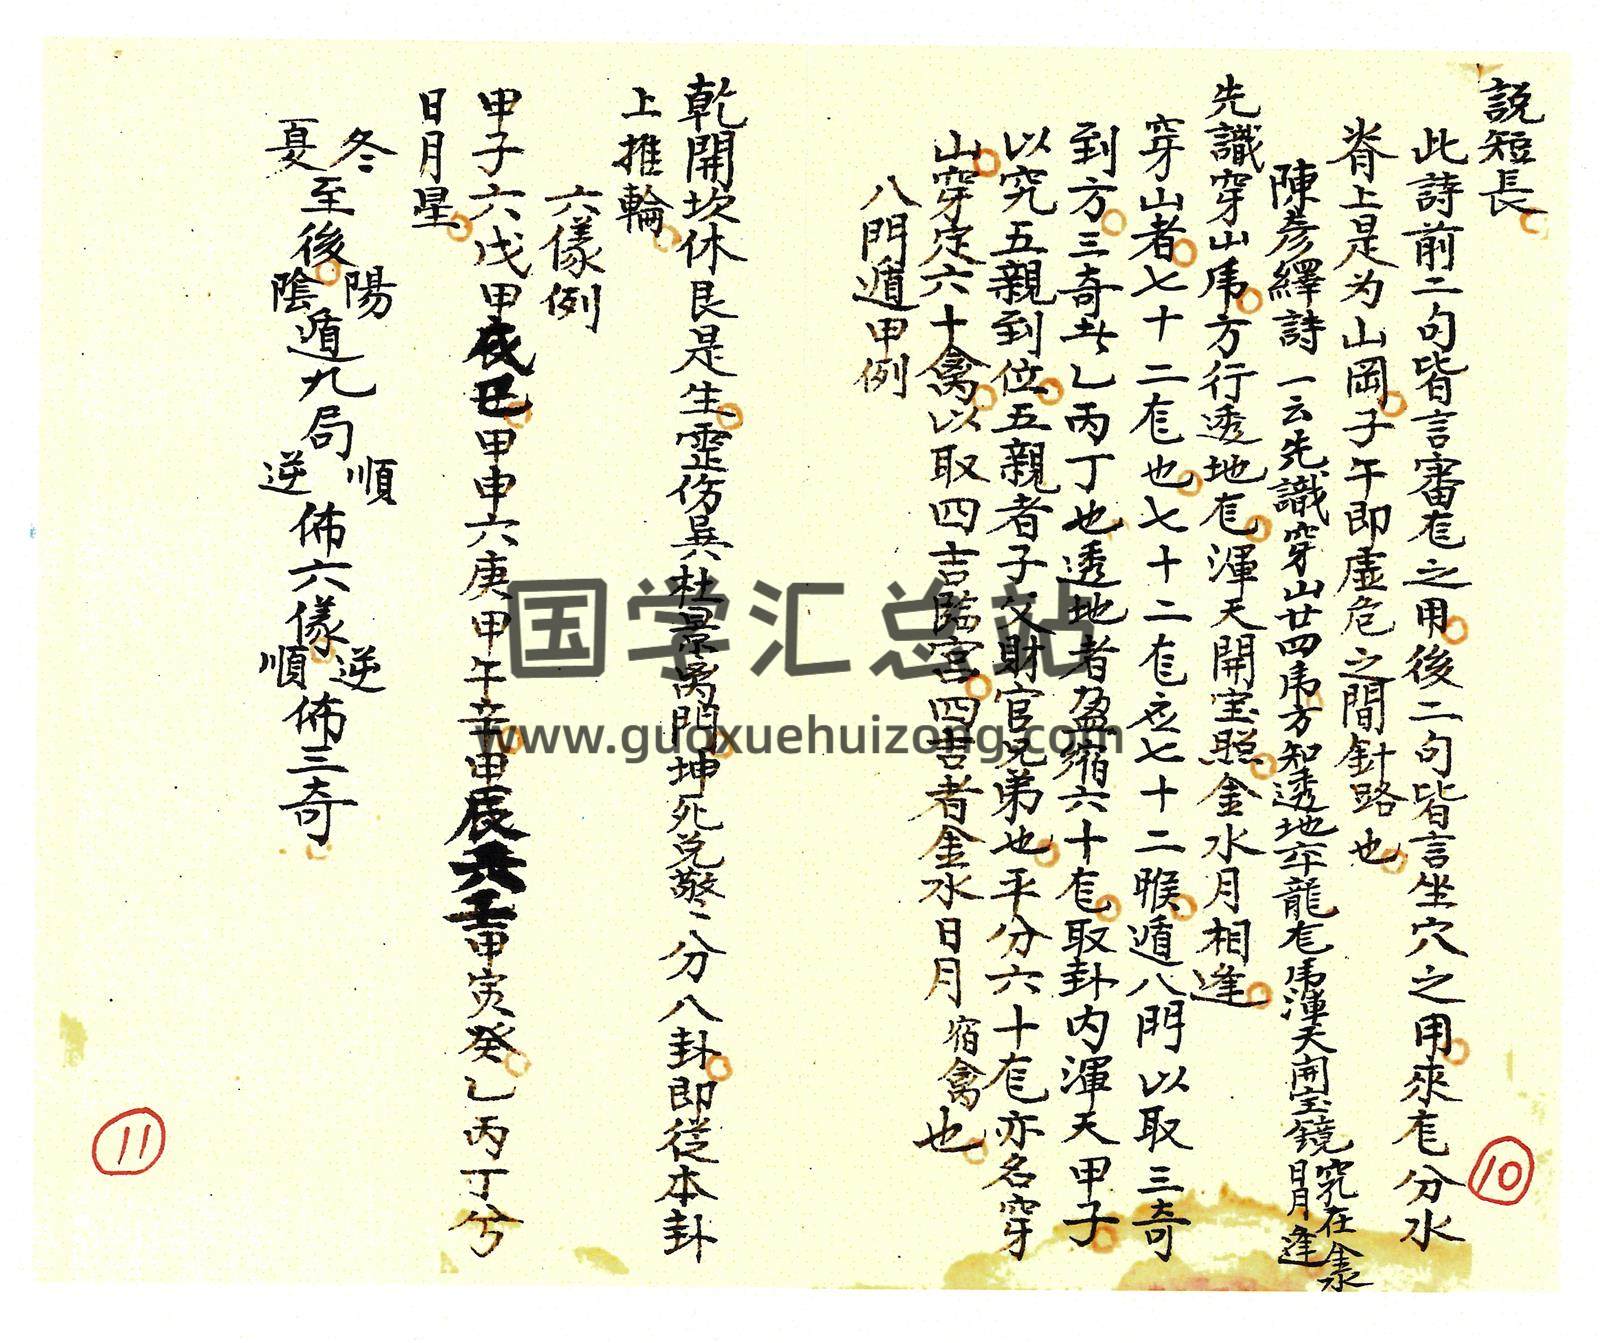 説短長
此詩前二句皆言審𡵨之用後二句皆言坐穴之用來𡵨分水
脊上是为山岡子午即虛危之間針路也
陳彦繹詩一云先識穿山廿四馬方知透地卒龍𡵨馬渾天開宝鏡究在金水日月逢
先識穿山馬方行透地𡵨渾天開宝照金水月相逢
穿山者七十二𡵨也七十二𡵨应七十二睺遁八門以取三奇
到方三奇此乙丙丁也透地者盈縮六十𡵨取卦内渾天甲子
以究五親到位五親者子父財官兄弟也平分六十𡵨亦名穿
山穿定六十禽以取四吉臨宮四吉者金水日月宿禽也
八門遁甲例
乾開坎休艮是生震伤巽杜景离門坤死兑驚々分八卦即從本卦
上推輪
六儀例
甲子六戊甲戌己甲申六庚甲午辛甲辰壬甲寅癸乙丙丁兮
日月星
冬夏至後陽陰遁九局順逆佈六儀逆順佈三奇
10
11
国学汇总站
www.guoxuehuizong.com